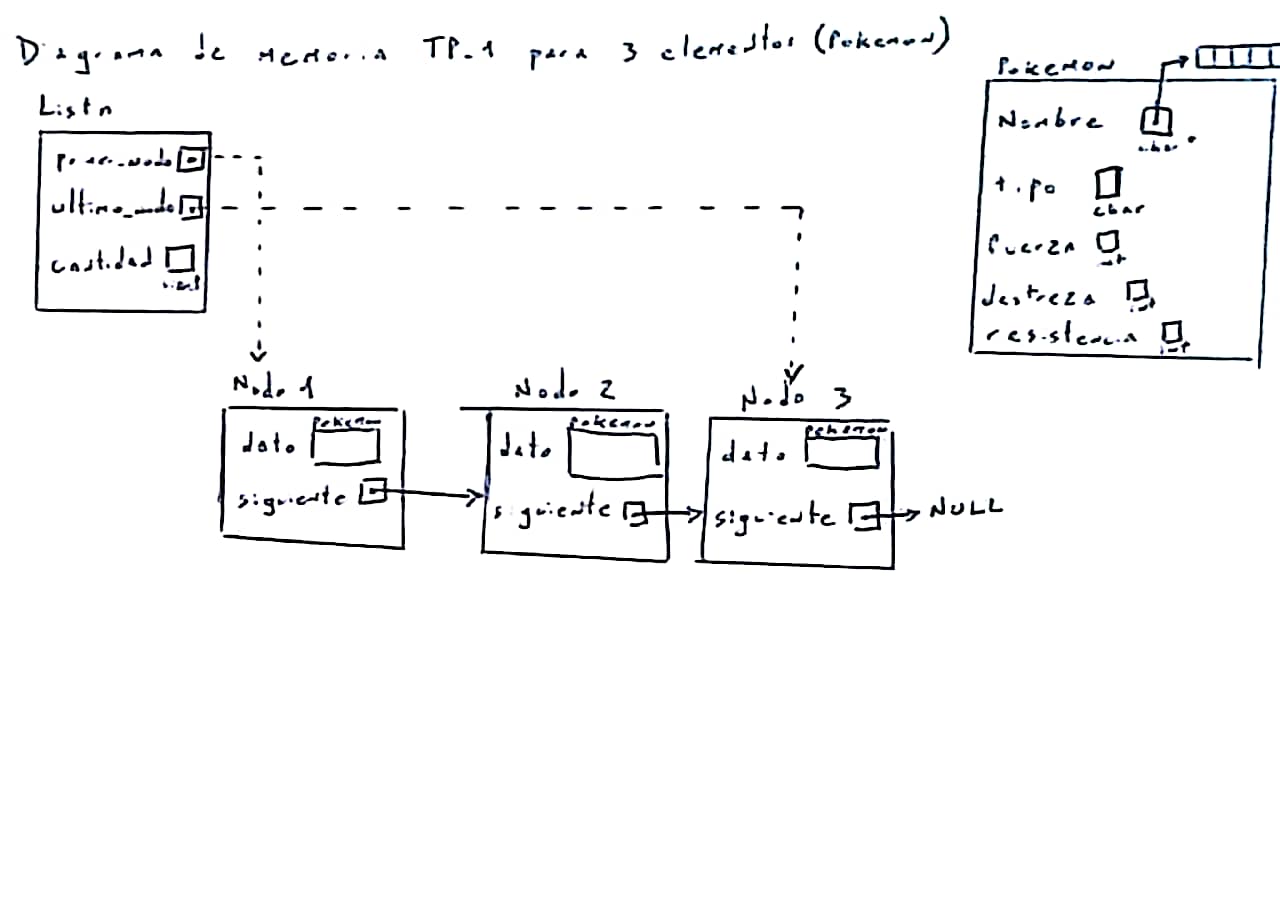 Diagrama de memoria TP-1 para 3 elementos (Pokemon)
Lista
primer_nodo
ultimo_nodo
cantidad
size_t
Pokemon
Nombre
char *
tipo
char
fuerza
int
destreza
int
resistencia
int
Nodo 1
Pokemon
dato
siguiente
Nodo 2
Pokemon
dato
siguiente
Nodo 3
Pokemon
dato
siguiente
NULL